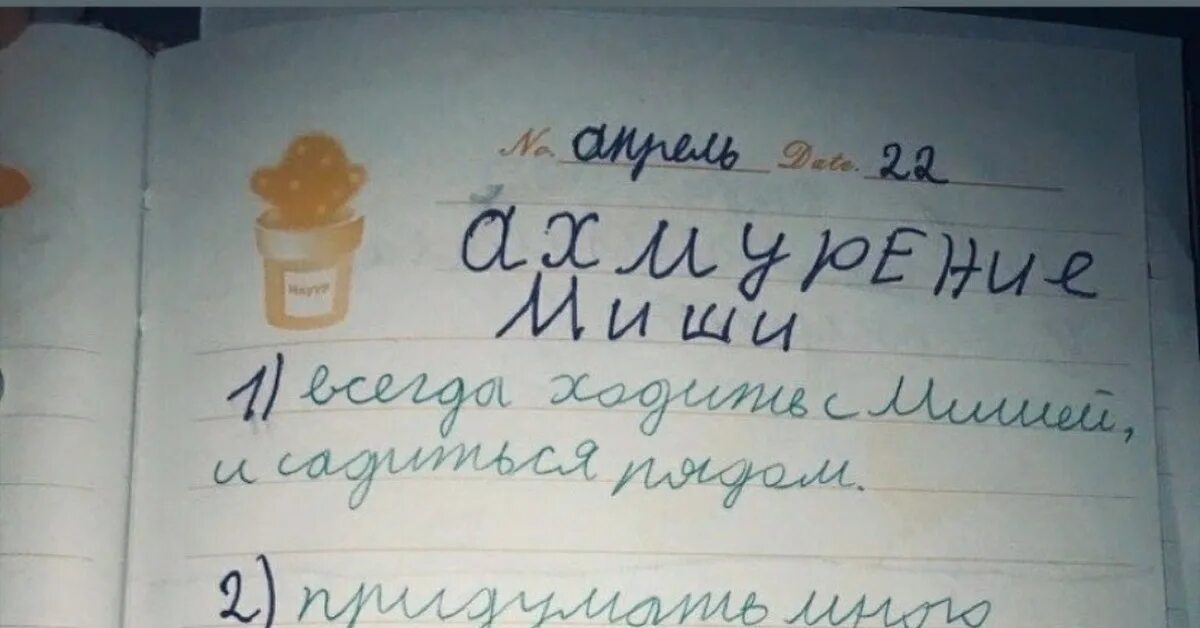 No. апрель Date. 22
ахмурЕние
Миши
1) всегда ходить с Мишей,
и садиться рядом.
2) придумать много